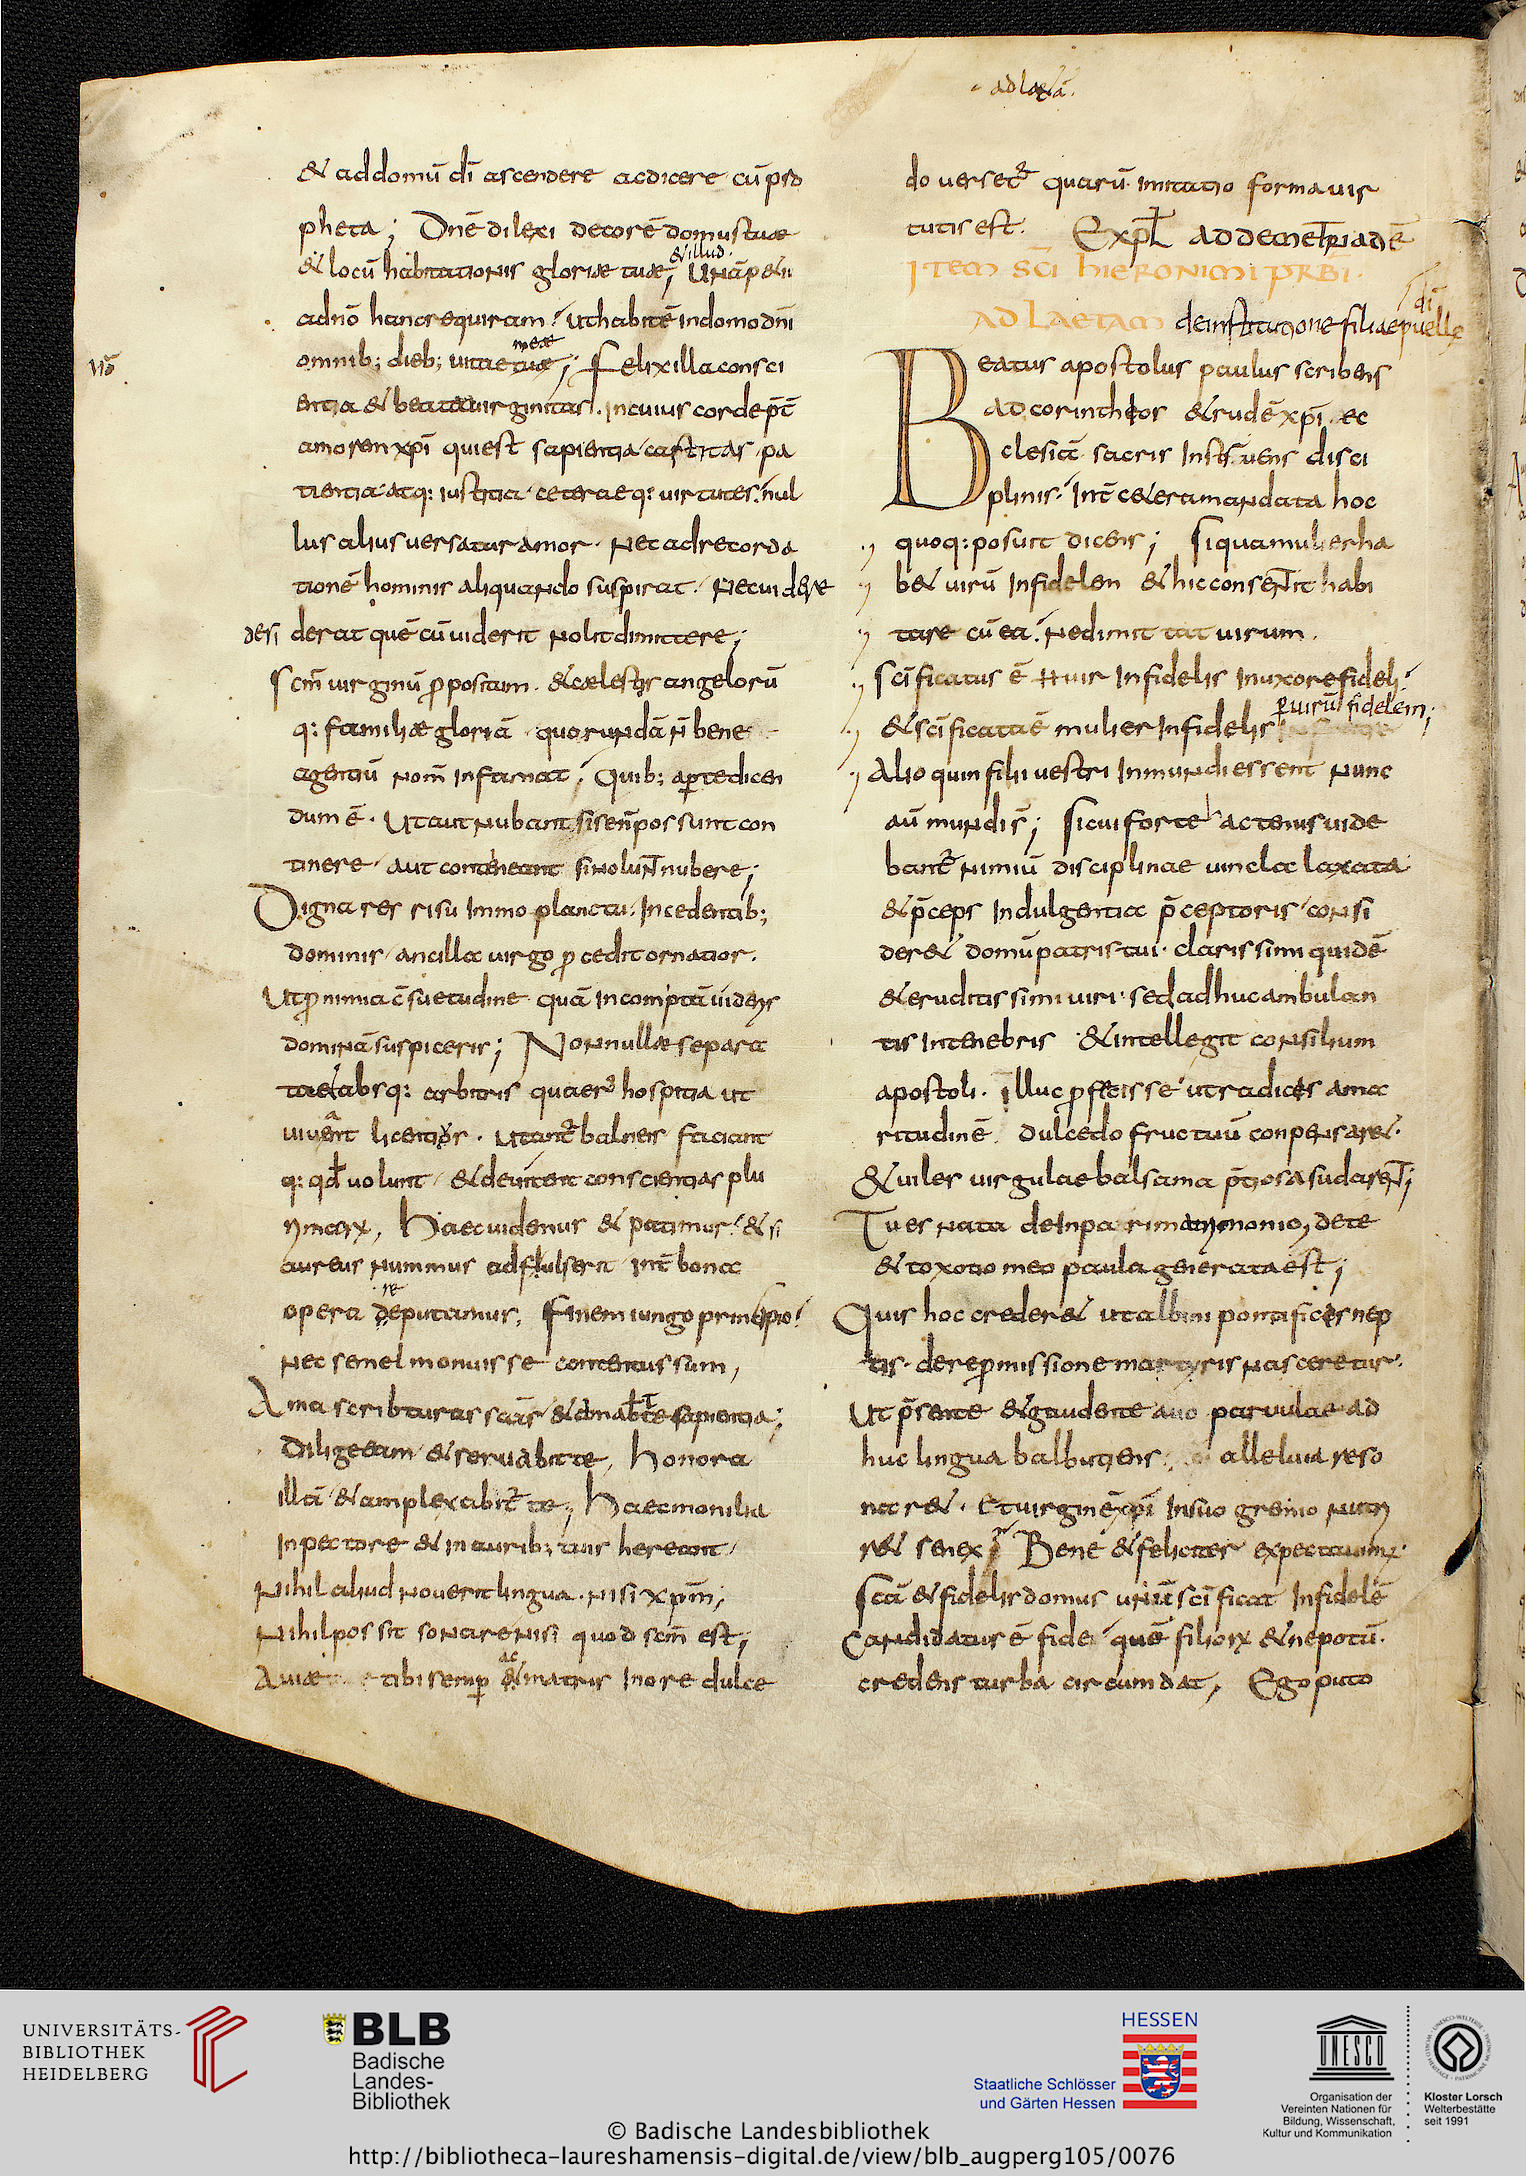 ad laetā.
& ad domū dī ascendere ac dicere cū pro
pheta; Dn̄e dilexi decorē domus tuae
& locū habitationis gloriae tuae; & illud. Unā peti
a dn̄o hanc requiram. ut habitē in domo dn̄i
omnib; dieb; vitae tuae meae; Felix illa consci
entia & beata virginitas. in cuius corde p̄t
amorem xp̄i qui est sapientia castitas pa
tientia atq: iustitia ceteraeq: virtutes. nul
lus alius versatur amor. Nec ad recorda
tionē hominis aliquando suspirat. Nec videre
desi derat quē cū viderit nolit dimittere;
Scm̄ virginū ppositum. & caelestis angelorū
q: familiae gloriā quorundā n̄ bene
agentiū nom̄ infamat; Quib; aperte dicen
dum ē. Ut aut nubant si se n̄ possunt con
tinere. aut contineant si nolunt nubere;
Digna res risu immo planctu. Incedentib;
dominis ancilla virgo pcedit ornatior.
Ut p nimia c̄suetudine quā incomptā videris
dominā suspiceris; Nonnullae separa
ta & absq: arbitris quaer̄ hospitia ut
vivant licentior. utant̄ balneis faciant
q: qd̄ volunt & devitent conscientias plu
rimarx, Haec videmus & patimur. & si
aureus nummus adfulserit int̄ bona
opera deputamus re, Finem iungo principio.
nec semel monuisse contentus sum,
Ama scribturas scās & amabit te sapientia;
Dilige eam & servabit te, Honora
illā & amplexabit̄ te; Haec monilia
in pectore & in aurib; tuis hereant,
Nihil aliud noverit lingua. nisi xpm̄;
Nihil possit sonare nisi quod scm̄ est;
Aviae tibi semp ac & matris in ore dulce
do verset̄ quarū. imitatio forma vir
tutis est. Expl̄ ad demetriadē
Item sc̄i hieronimi prb̄i.
ad laetam de institutione filiae puellę
Beatus apostolus paulus scribens
ad corintheos & rudē xp̄i ec
clesiā sacris instruens disci
plinis. Int̄ c&era mandata hoc
quoq: posuit dicens; Si qua mulier ha
b& virū infidelem & hic consentit habi
tare cū ea. ne dimittat virum.
Sc̄ificatus ē vir infidelis in uxore fideli.
& sc̄ificata ē mulier infidelis p virū fidelem;
Alioquin filii vestri inmundi essent nunc
aū mundi s̄; Si cui forte actenus vide
bant̄ nimiū disciplinae vincla laxata
& p̄ceps indulgentia p̄ceptoris consi
der& domū patris tui. clarissimi quidē
& eruditissimi viri. sed adhuc ambulan
tis in tenebris & intellegit consilium
apostoli. Illuc pfecisse ut radices ama
ritudinē dulcedo fructuū conpensar&.
& viles virgulae balsama p̄tiosa sudarent;
Tu es nata de inpari matrimonio, de te
& toxotio meo paula generata est;
Quis hoc creder& ut albini pontificis nep
tis. de repmissione martyris nasceretur.
Ut p̄sente & gaudente avo parvulae ad
huc lingua balbutiens alleluia reso
nar&. Et virginē xp̄i in suo gremio nutri
r& senex; Bene & feliciter expectavimx.
Scā & fidelis domus unū sc̄ificat infidelē
Candidatus ē fidei quē filiorx & nepotū.
credens turba circumdat, Ego puto
UNIVERSITÄTS-
BIBLIOTHEK
HEIDELBERG
BLB
Badische
Landes-
Bibliothek
HESSEN
Staatliche Schlösser
und Gärten Hessen
UNESCO
Organisation der
Vereinten Nationen für
Bildung, Wissenschaft,
Kultur und Kommunikation
Kloster Lorsch
Welterbestätte
seit 1991
© Badische Landesbibliothek
http://bibliotheca-laureshamensis-digital.de/view/blb_augperg105/0076